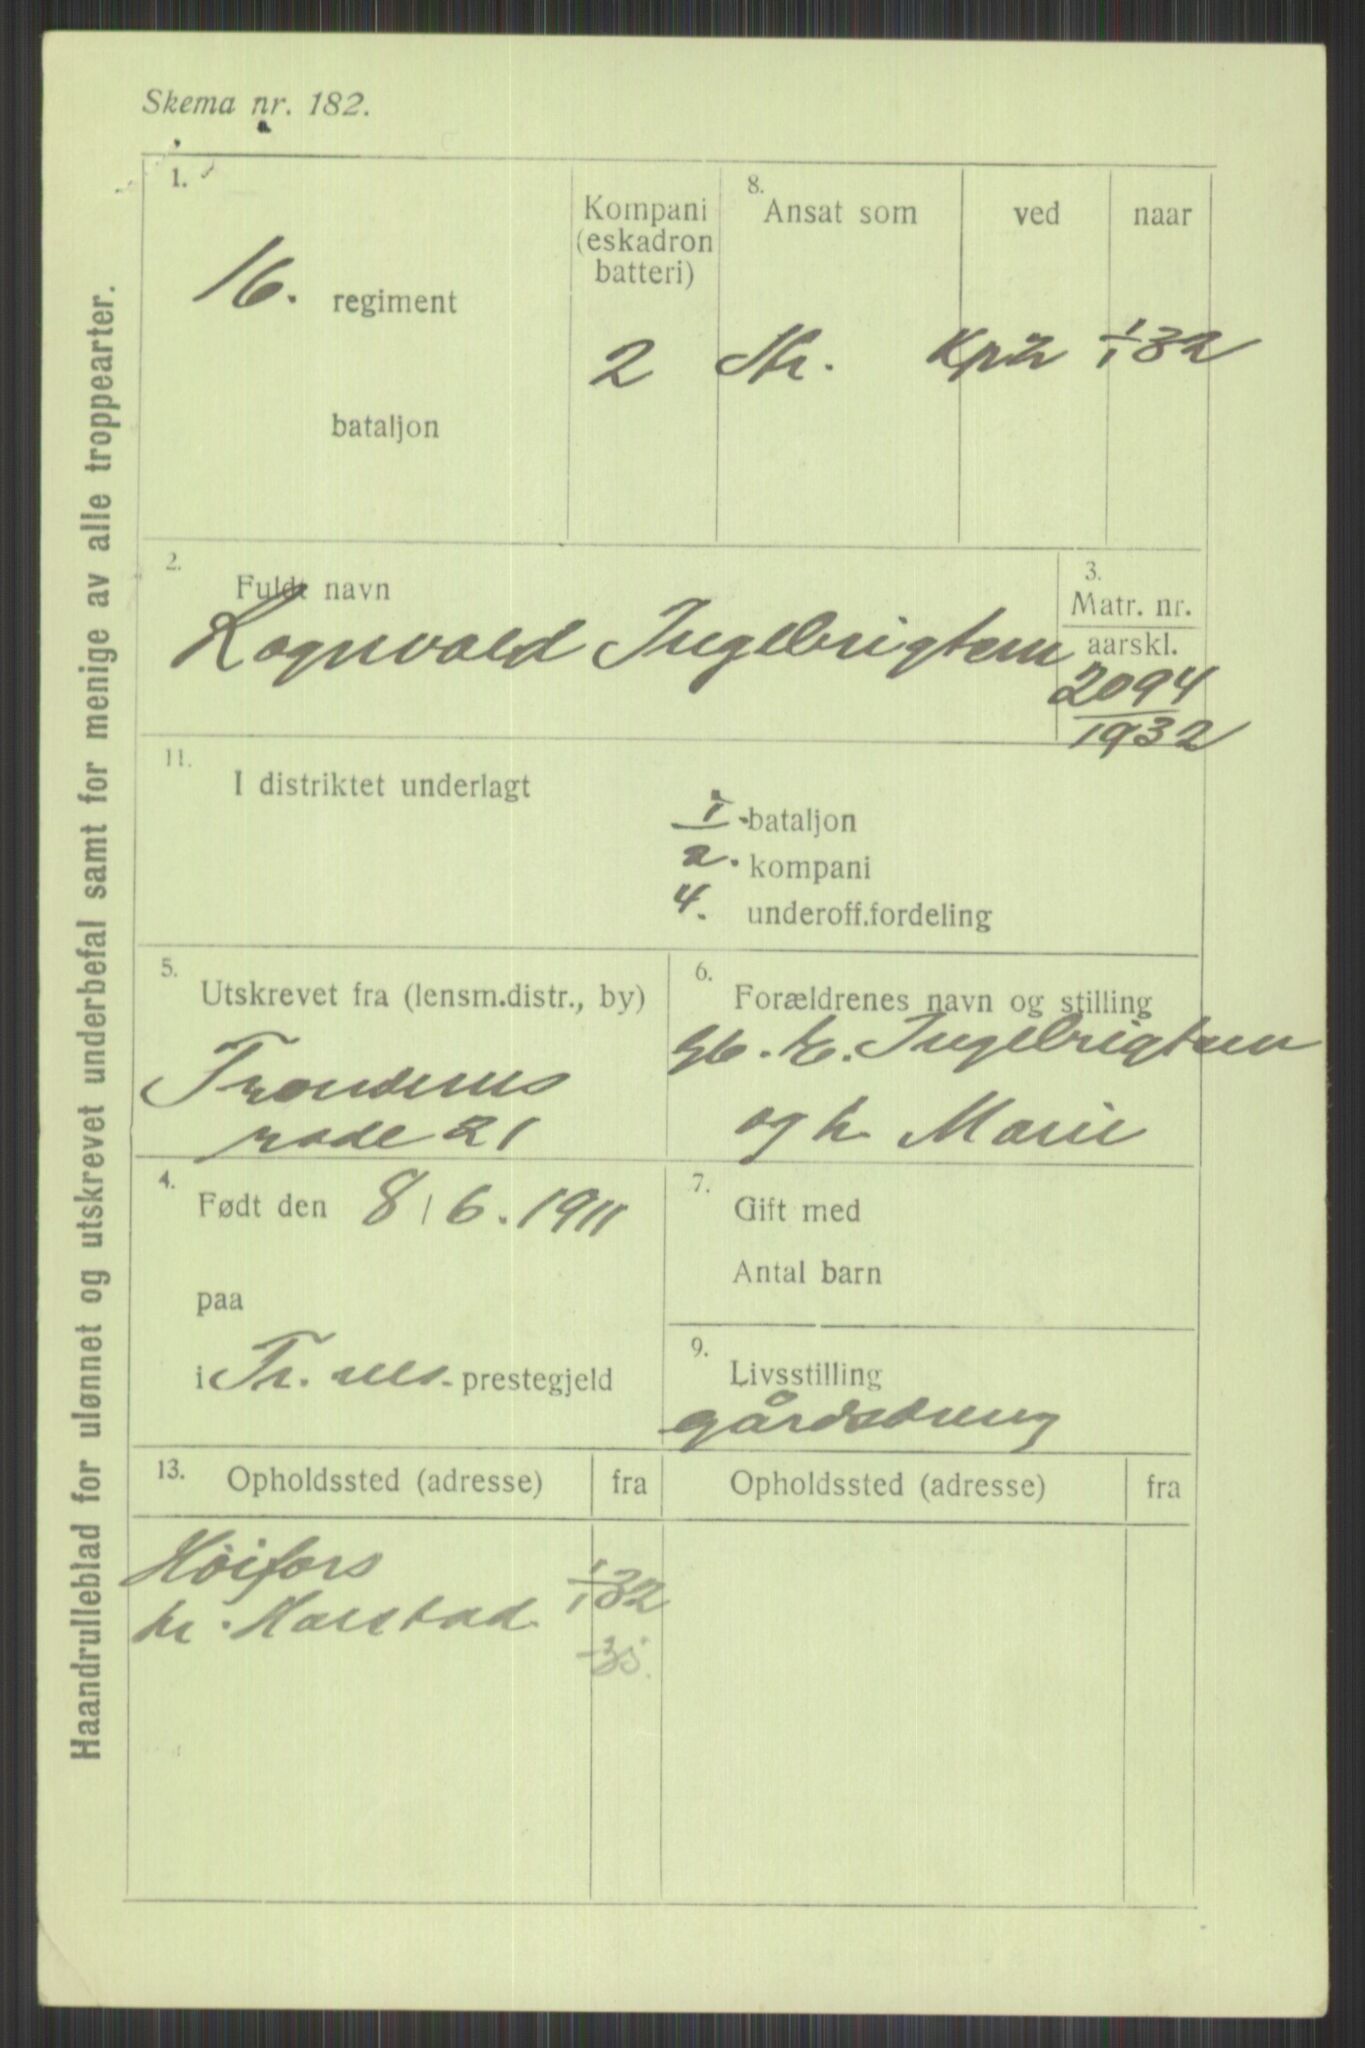 Skema nr. 182.
Haandrulleblad for ulønnet og utskrevet underbefal samt for menige av alle troppearter.
1.
16. regiment
bataljon
Kompani
(eskadron
batteri)
2
8.
Ansat som
ved
naar
1/1 32
2.
Fuldt navn
Ragnvald Ingebrigtsen
3.
Matr. nr.
aarskl.
2094
1932
11.
I distriktet underlagt
I. bataljon
2. kompani
4. underoff.fordeling
5.
Utskrevet fra (lensm.distr., by)
Trondenes
rode 21
6.
Forældrenes navn og stilling
Ingebrigtsen
og h. Marie
4.
Født den 8/6. 1911
paa
i Tr. nes. prestegjeld
7.
Gift med
Antal barn
9.
Livsstilling
gårdsdreng
13.
Opholdssted (adresse)
fra
Opholdssted (adresse)
fra
Høifors
pr. Harstad 1/1 32
-35.